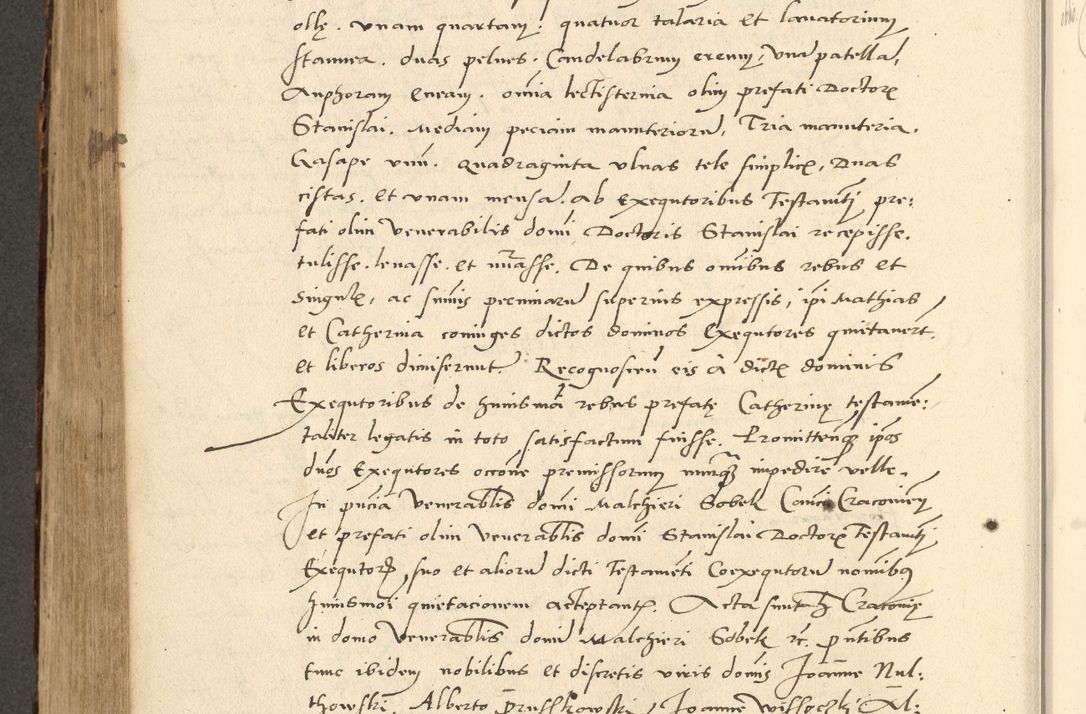 ollę. Unam quartam. quatuor talaria et lauatorium
stannea. duas pelues. Candelabrum ereum, Una patella,
Anphoram Eneam. omnia lectisternia olim prefati Doctoris
Stanislai. Mediam peciam manuteriorum, Tria manuteria.
Gasape unum. Quadraginta ulnas tele simplicis, Duas
cistas. et unam mensam. Ab Exequtoribus Testamenti pre:
fati olim Venerabilis domini Doctoris Stanislai recepisse.
tulisse. leuasse. et leuasse. De quibus omnibus rebus et
singulis, ac summis pecuniarum superius expressis, ipsi Mathias
et Catherina coniuges dictos dominos Exequtores quietauerunt.
et liberos dimiserunt. Recognoscentes eis a dictis dominis
Exequtoribus de huiusmodi rebus prefatę Catherinę testamen:
taliter legatis in toto satisfactum fuisse. Promittentesque ipsos
dominos Exequtores occasione premissorum nunquam impedire velle.
In presencia Venerabilis domini Malchieri Sobek Canonici Cracouiensis
et prefati olim Venerabilis domini Stanislai Doctoris Testamenti
Exequtoris, suo et aliorum dicti Testamenti Coexequtorum nominibus
huiusmodi quietacionem acceptantis. Acta sunt hec Cracouię
in domo Venerabilis domini Malchieri Sobek etc. presentibus
tunc ibidem nobilibus et discretis viris dominis Joanne Nul:
thowski, Alberto Pruszkowski, Joanne Al: